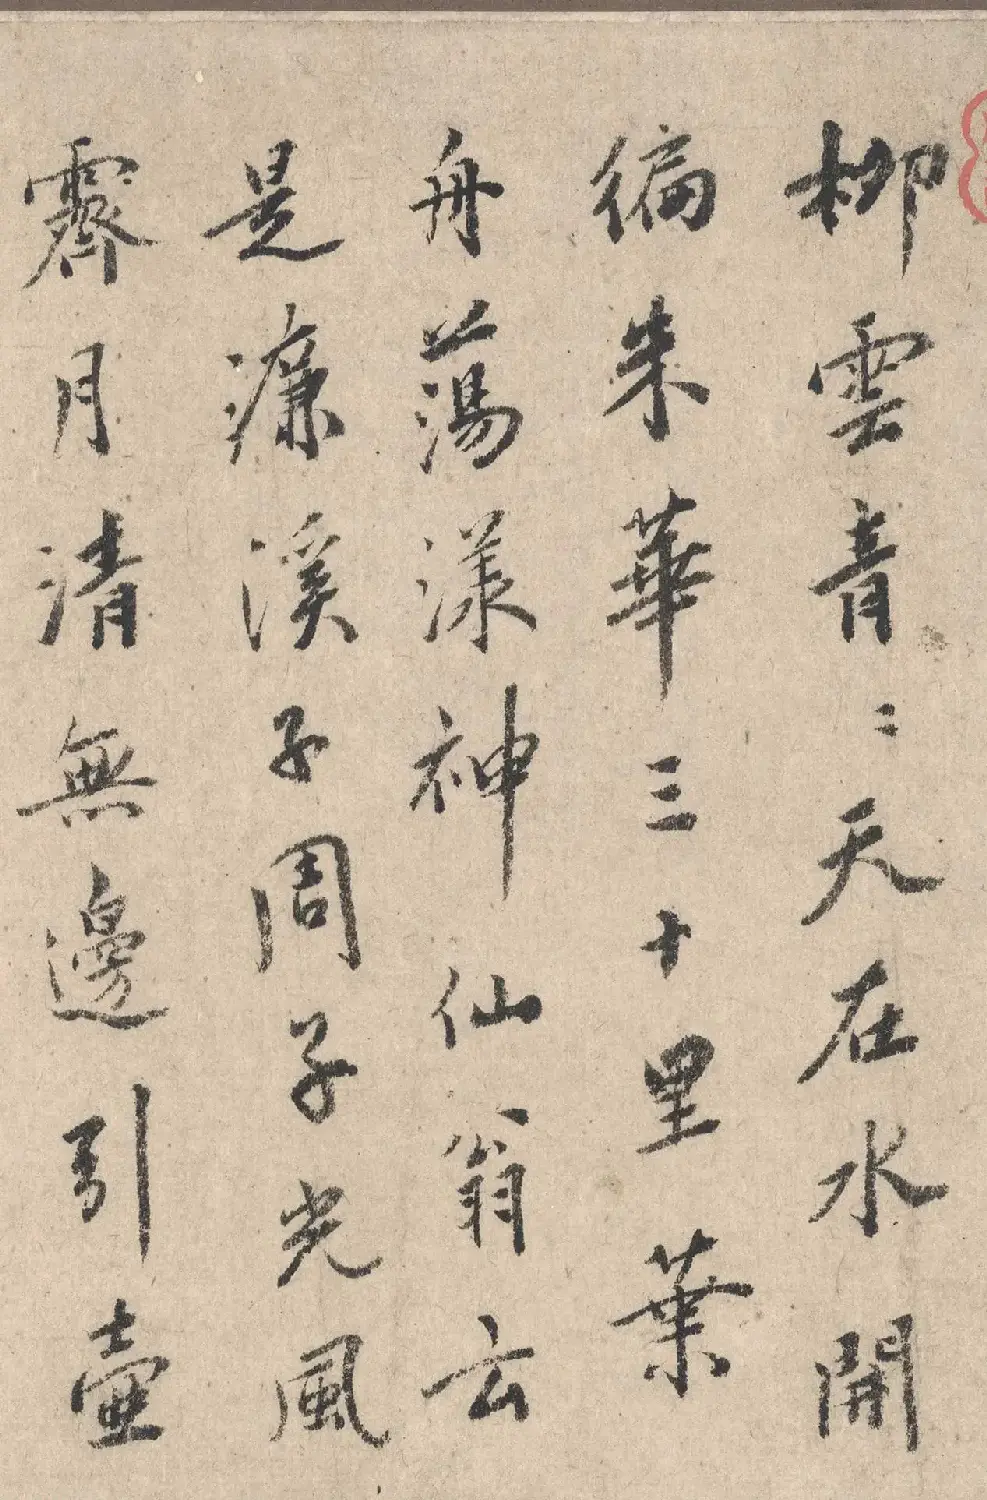 柳雲青〻天在水開
徧朱華三十里葉
舟蕩漾神仙翁云
是濂溪子周子光風
霽月清無邊引壺